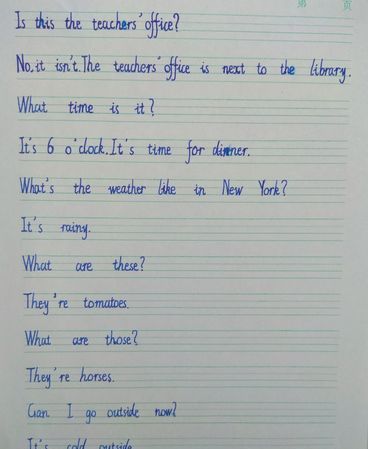 第 页
Is this the teachers' office?
No, it isn't. The teachers' office is next to the library.
What time is it?
It's 6 o'clock. It's time for dinner.
What's the weather like in New York?
It's rainy.
What are these?
They're tomatoes.
What are those?
They're horses.
Can I go outside now?
It's cold outside